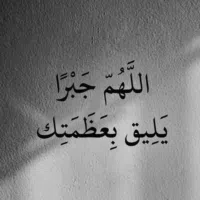 اللَّهُمّ جَبْرًا
يَلِيق بِعَظَمَتِك